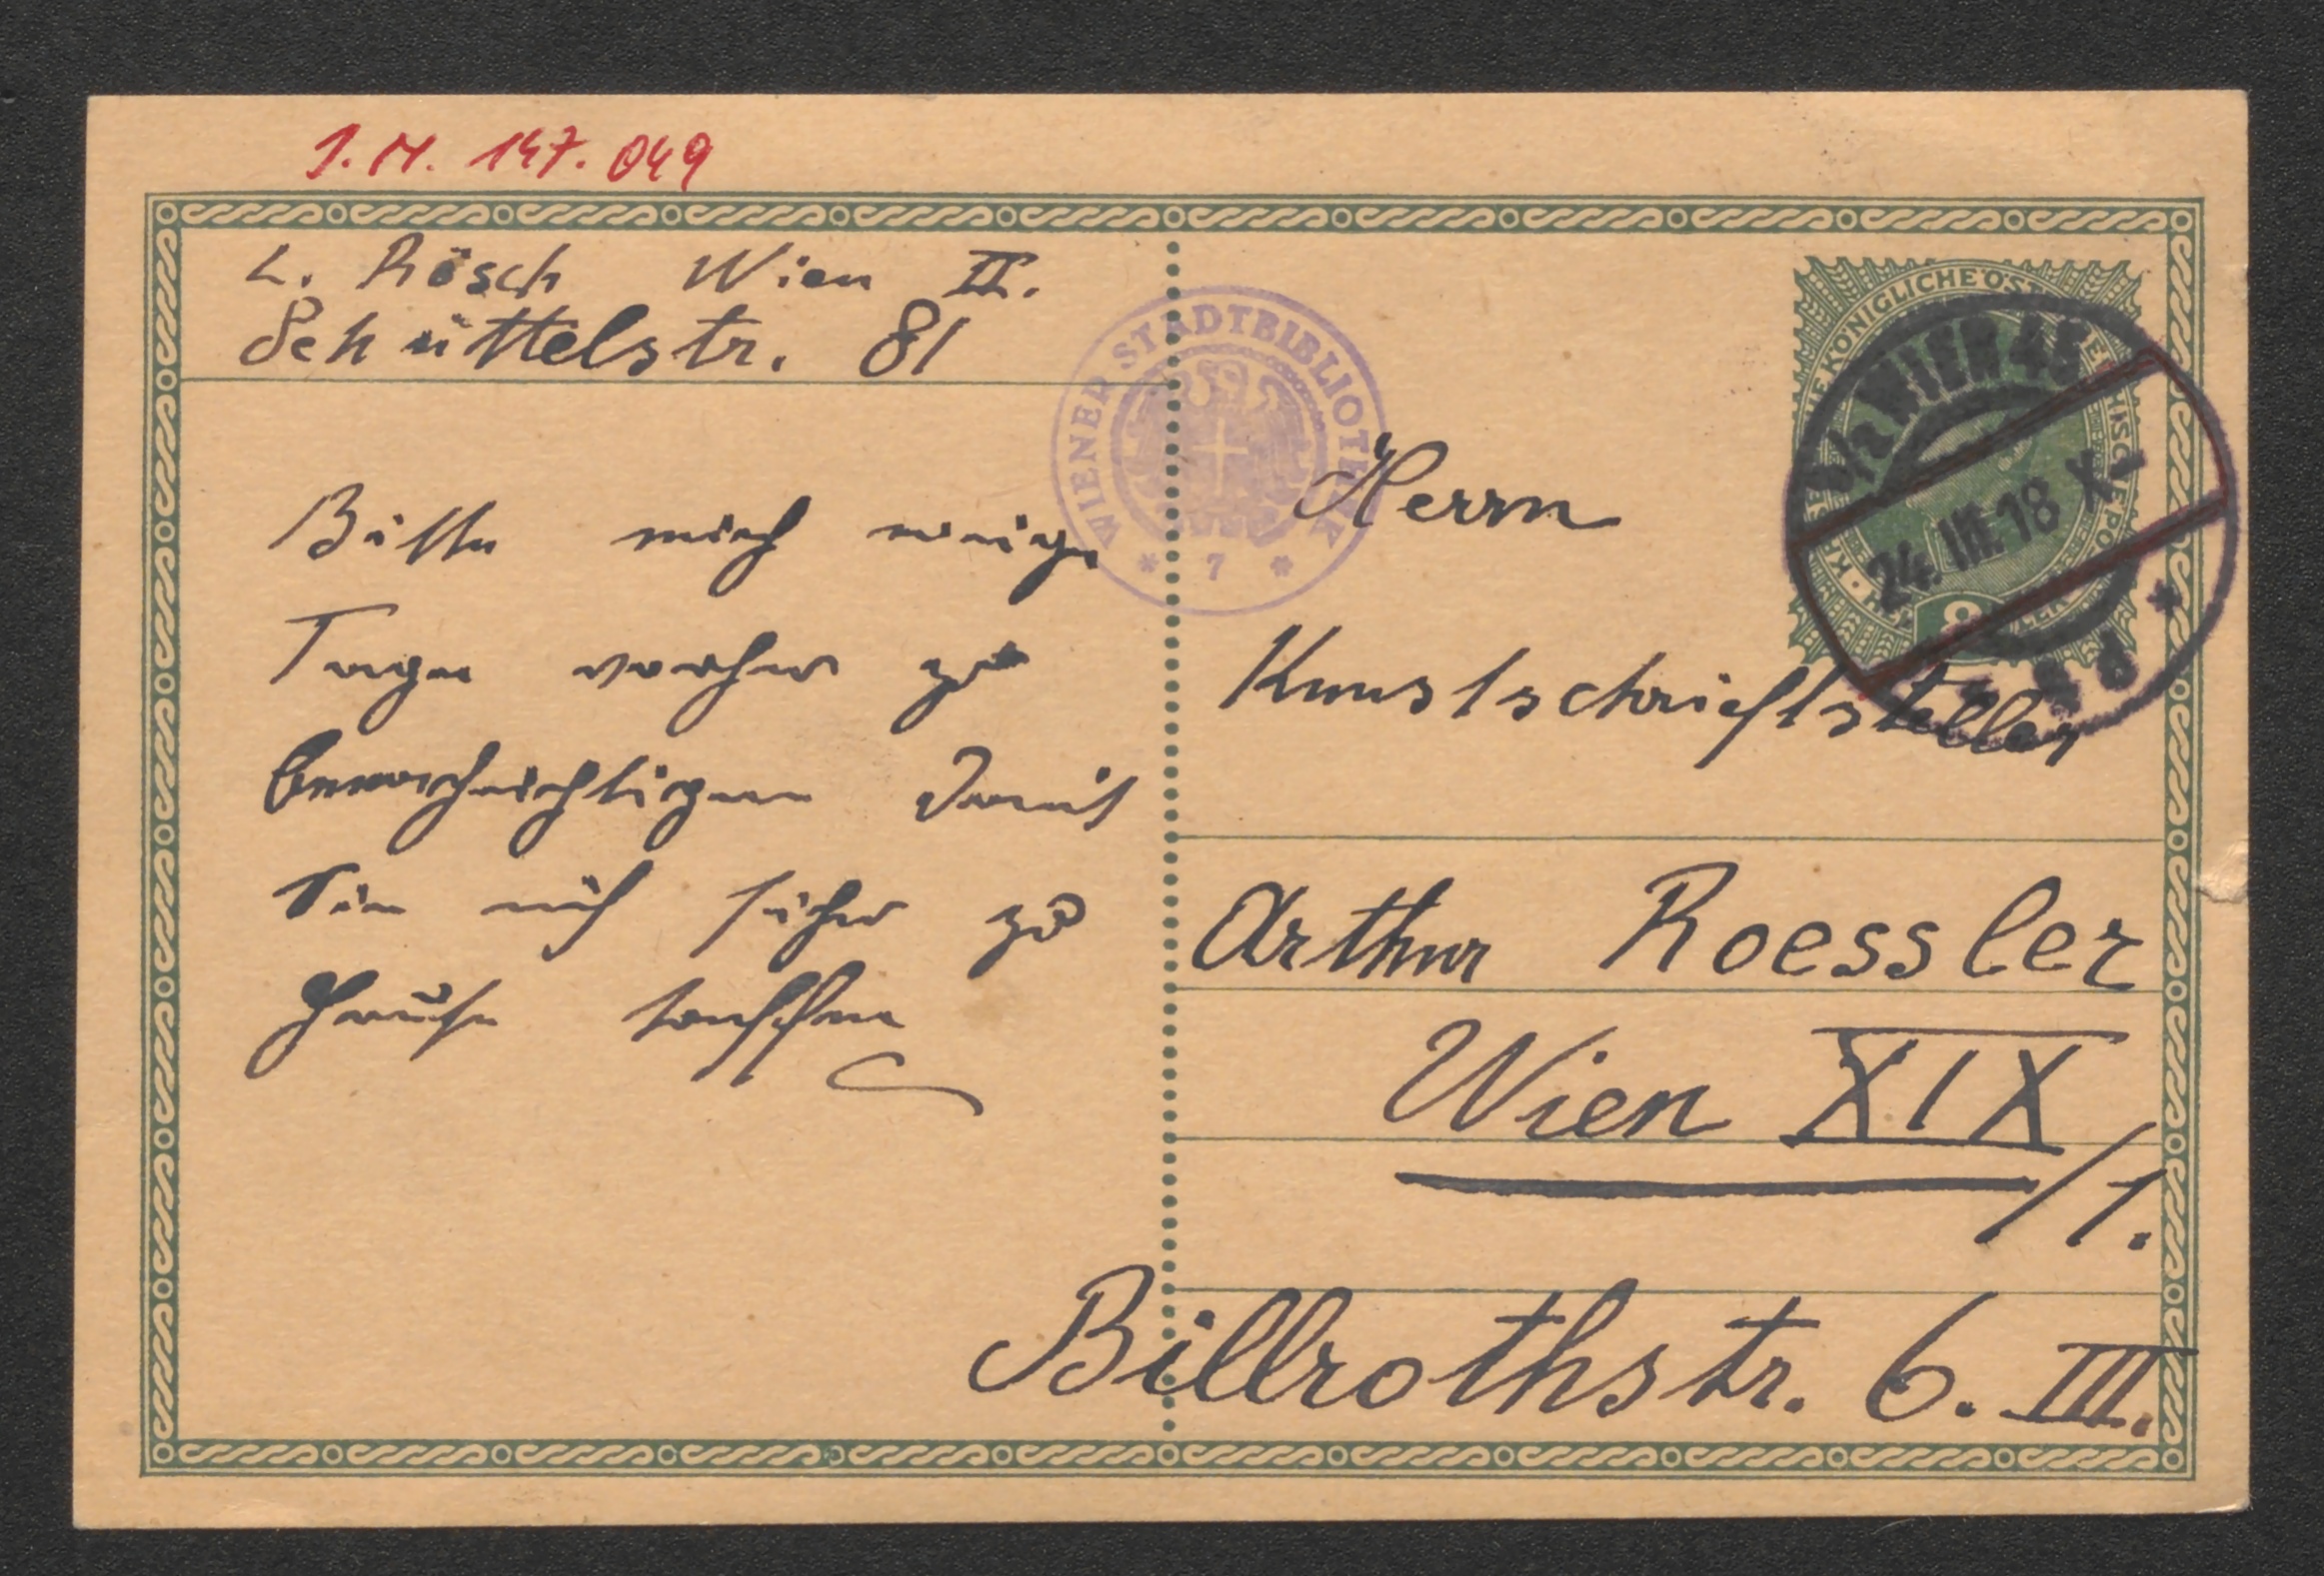 I.N. 147.049
L. Rösch Wien II.
Schüttelstr. 81
Bitte mich einige
Tage vorher zu
benachrichtigen damit
Sie mich sicher zu
Hause treffen
WIENER STADTBIBLIOTHEK
* 7 *
WIEN 45
24. III. 18 X
8
Herrn
Kunstschriftsteller
Arthur Roessler
Wien XIX
/1.
Billrothstr. 6. III.